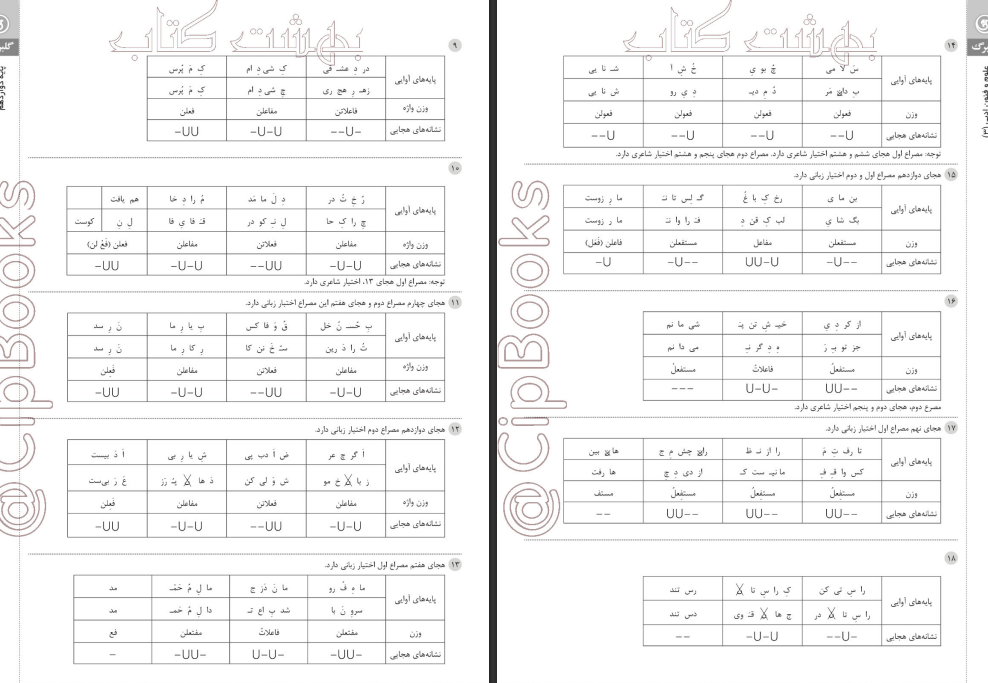 بهشت کتاب
۹
پایه‌های آوایی
در دِ عشـ قی
کِ شی دِ ام
کِ مَ پُرس
زهـ رِ هج ری
چِ شی دِ ام
کِ مَ پُرس
وزن واژه
فاعلاتن
مفاعلن
فعلن
نشانه‌های هجایی
–U––
U–U–
UU–
۱۰
پایه‌های آوایی
رُ خِ تُ در
دِ لَ ما مَد
مُ را دِ خا
هم یافت
چِ را کِ حا
لِ نِـ کو در
قـَ فا ی فا
لِ نِ
کوست
وزن واژه
مفاعلن
فعلاتن
مفاعلن
فعلن (فَعْ لن)
نشانه‌های هجایی
U–U–
UU––
U–U–
UU–
توجه: مصراع اول هجای ۱۳، اختیار شاعری دارد.
۱۱ هجای چهارم مصراع دوم و هجای هفتم این مصراع اختیار زبانی دارد.
پایه‌های آوایی
بِ حُسـ نُ خل
قُ وَ فا کس
بِ یا رِ ما
نَ رِ سد
تُ را دَ رین
سـُ خَ نن کا
رِ کا رِ ما
نَ رِ سد
وزن واژه
مفاعلن
فعلاتن
مفاعلن
فَعِلن
نشانه‌های هجایی
U–U–
UU––
U–U–
UU–
۱۲ هجای دوازدهم مصراع دوم اختیار زبانی دارد.
پایه‌های آوایی
اَ گر چِ عر
ضِ اَ دب پی
شِ یا رِ بی
اَ دَ بیست
ز با خ مو
ش وَ لی کن
دَ ها پُـ رَز
عَ رَ بی‌ست
وزن واژه
مفاعلن
فعلاتن
مفاعلن
فَعِلن
نشانه‌های هجایی
U–U–
UU––
U–U–
UU–
۱۳ هجای هفتم مصراع اول اختیار زبانی دارد.
پایه‌های آوایی
ما هِ فُ رو
ما نَ دَز جَ
ما لِ مُ حَمـ
مد
سروِ نَ با
شد بِ اع تِـ
دا لِ مُ حمـ
مد
وزن
مفتعلن
فاعلاتُ
مفتعلن
فع
نشانه‌های هجایی
–UU–
–U–U
–UU–
–
بهشت کتاب
۱۴
پایه‌های آوایی
سَ لا می
چُ بو یِ
خُ شِ آ
شـِ نا یی
بِ دان مَر
دُ مِ دیـ
دِ یِ رو
شِ نا یی
وزن
فعولن
فعولن
فعولن
فعولن
نشانه‌های هجایی
U––
U––
U––
U––
توجه: مصراع اول هجای ششم و هشتم اختیار شاعری دارد. مصراع دوم هجای پنجم و هشتم اختیار شاعری دارد.
۱۵ هجای دوازدهم مصراع اول و دوم اختیار زبانی دارد.
پایه‌های آوایی
بن ما ی
رخ کِ با غُ
گـُ لِس تا نَـ
ما رِ زوست
بگ شا یِ
لب کِ قن دِ
فـَ را وا نَـ
ما رِ زوست
وزن
مستفعلن
مفاعل
مستفعلن
فاعلن (فَعَل)
نشانه‌های هجایی
––U–
U–UU
––U–
U–
۱۶
پایه‌های آوایی
از کر دِ یِ
خیـ شِ تن پَـ
شی ما نم
جز تو بِـ رَ
هِ دِ گر نِـ
می دا نم
وزن
مستفعلُ
فاعلاتُ
مستفعلْ
نشانه‌های هجایی
––UU
–U–U
–––
مصرع دوم، هجای دوم و پنجم اختیار شاعری دارد.
۱۷ هجای نهم مصراع اول اختیار زبانی دارد.
پایه‌های آوایی
تا رف تِ مَ
را از نَـ ظَ
ران چش مِ ج
هان بین
کس وا قِـ فِ
ما نیـ ست کِـ
از دی دِ چِ
ها رفت
وزن
مستفعلُ
مستفعلُ
مستفعلُ
مستف
نشانه‌های هجایی
––UU
––UU
––UU
––
۱۸
پایه‌های آوایی
را سِ تی کن
کِ را سِ تا
رس تند
را سِ تا در
جَ ها قـَ وی
دس تند
نشانه‌های هجایی
–U––
U–U–
––
علوم و فنون ادبی (۳)
پایه دوازدهم
@CipBooks
@CipBooks